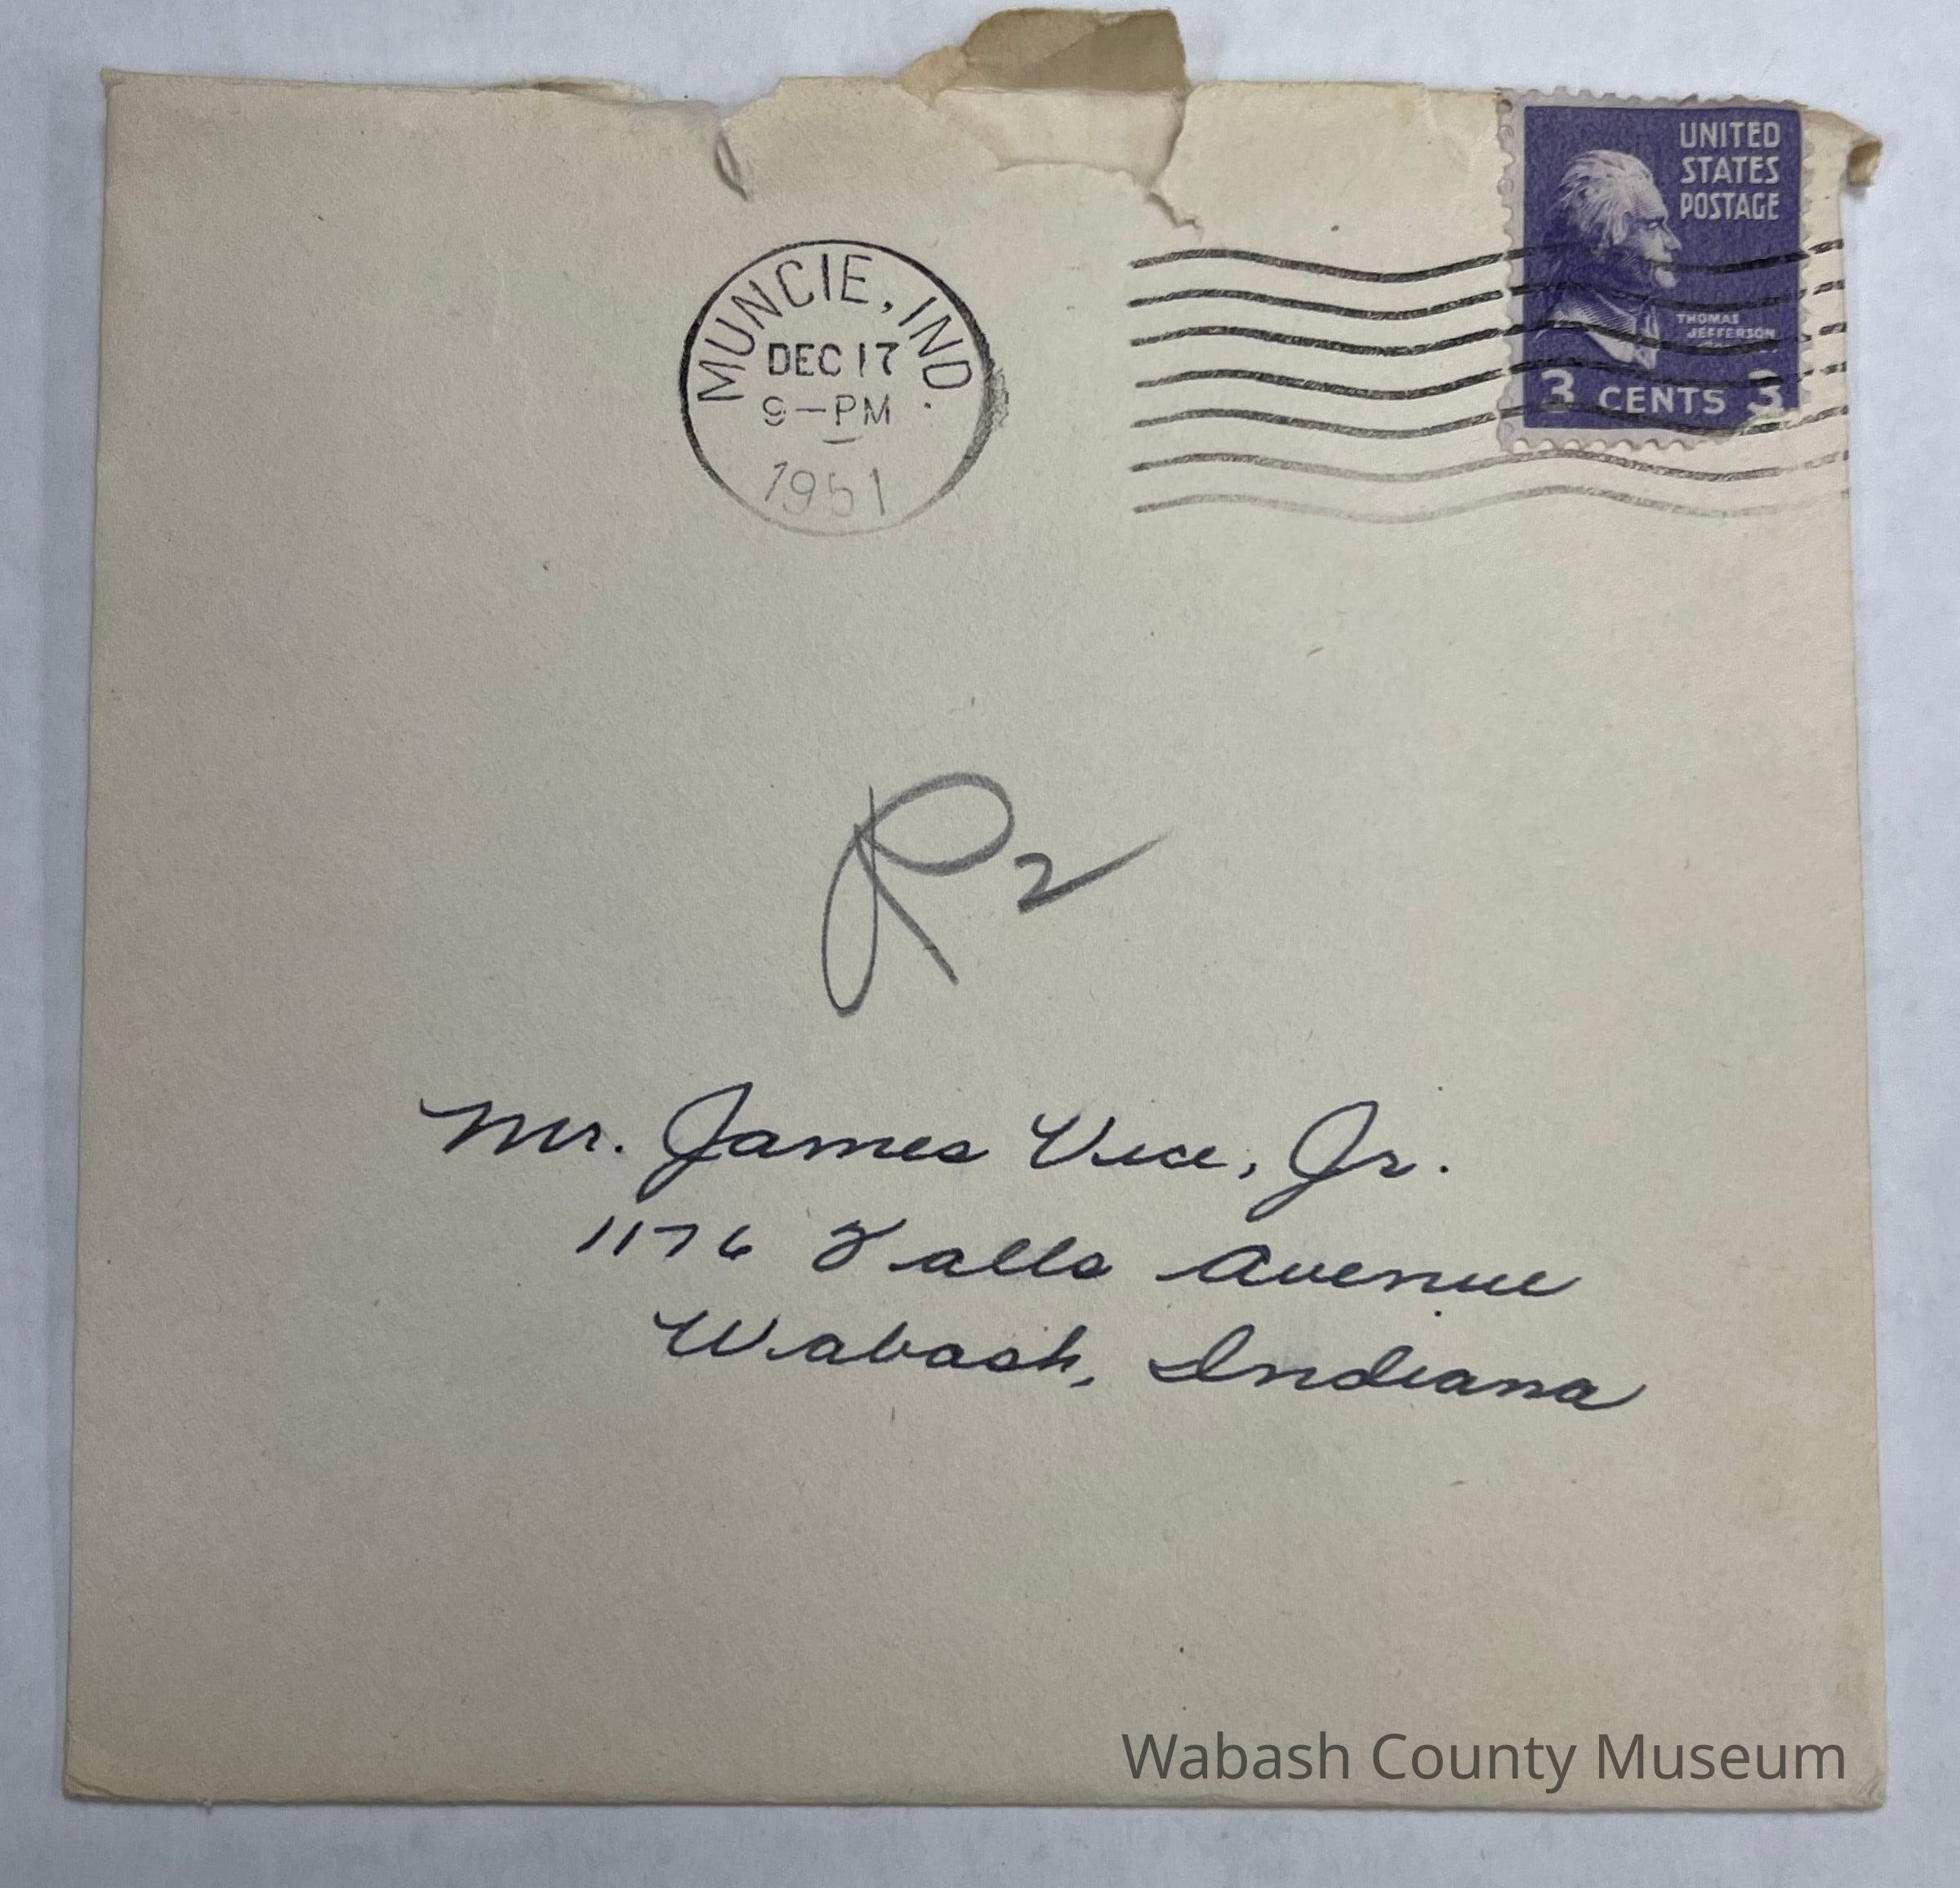 UNITED
STATES
POSTAGE
THOMAS
JEFFERSON
3 CENTS 3
MUNCIE, IND.
DEC 17
9-PM
1951
R2
Mr. James Vice, Jr.
1176 Falls Avenue
Wabash, Indiana
Wabash County Museum